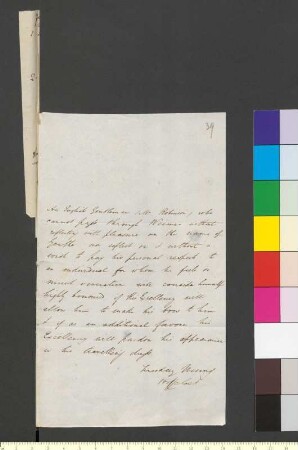 34
An English Gentleman Mr Robinson, who
cannot pass through Weimar without
reflecting with pleasure on the name of
Goethe nor reflect on it without a
wish to pay his personal respect to
an individual for whom he feels a
sincere veneration will consider himself
highly honoured if his Excellency will
allow him to make his bow to him
& if as an additional favour his
Excellency will pardon his appearance
in his travelling dress
Tuesday Morng